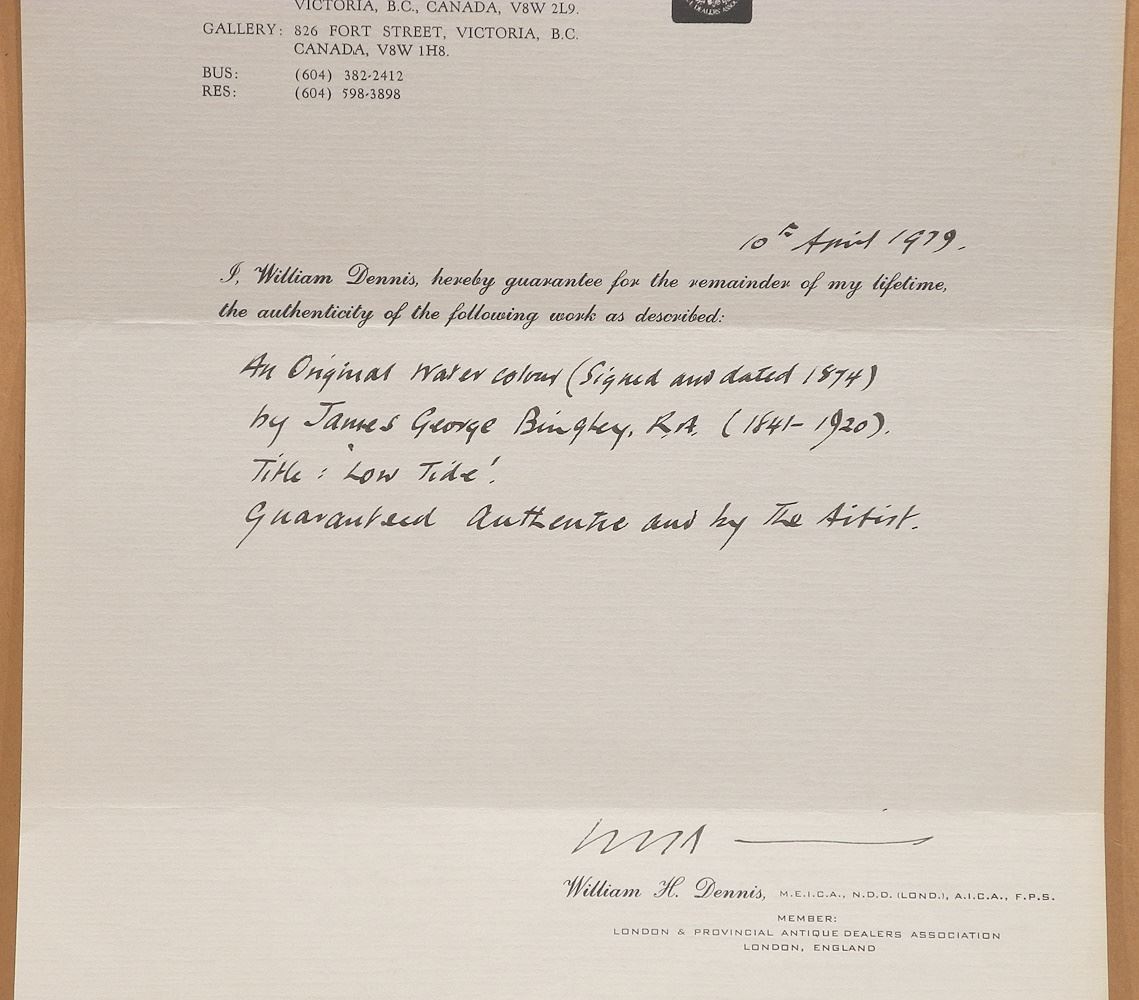 VICTORIA, B.C., CANADA, V8W 2L9.
GALLERY: 826 FORT STREET, VICTORIA, B.C.
CANADA, V8W 1H8.
BUS: (604) 382-2412
RES: (604) 598-3898
10th April 1979.
I, William Dennis, hereby guarantee for the remainder of my lifetime,
the authenticity of the following work as described:
An Original Water colour (Signed and dated 1874)
by James George Bingley, R.A. (1841-1920).
Title: 'Low Tide'.
Guaranteed Authentic and by The Artist.
William H. Dennis, M.E.I.C.A., N.D.D. (LOND.), A.I.C.A., F.P.S.
MEMBER:
LONDON & PROVINCIAL ANTIQUE DEALERS ASSOCIATION
LONDON, ENGLAND